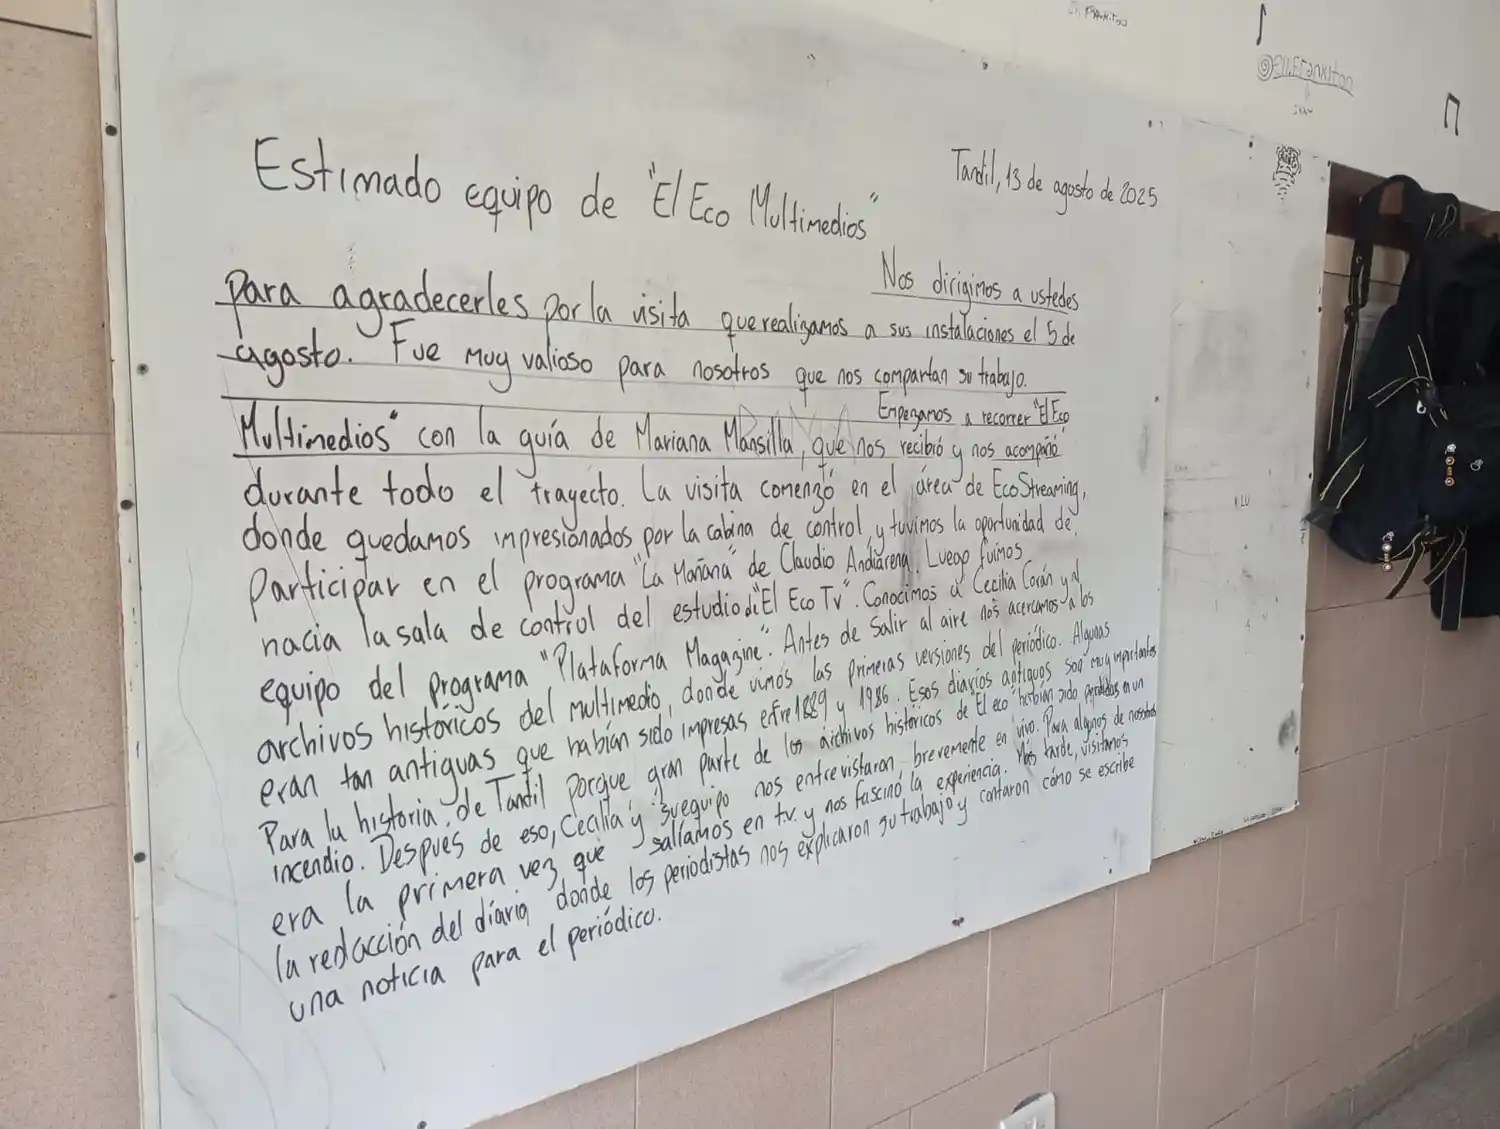 Tandil, 13 de agosto de 2025
Estimado equipo de "El Eco Multimedios"
Nos dirigimos a ustedes
para agradecerles por la visita que realizamos a sus instalaciones el 5 de
agosto. Fue muy valioso para nosotros que nos compartan su trabajo.
Empezamos a recorrer "El Eco
Multimedios" con la guía de Mariana Mansilla, que nos recibió y nos acompañó
durante todo el trayecto. La visita comenzó en el área de Eco Streaming,
donde quedamos impresionados por la cabina de control, y tuvimos la oportunidad de
participar en el programa "La Mañana" de Claudio Andiarena. Luego fuimos
hacia la sala de control del estudio de "El Eco Tv". Conocimos a Cecilia Corán y al
equipo del programa "Plataforma Magazine". Antes de salir al aire nos acercamos a los
archivos históricos del multimedio, donde vimos las primeras versiones del periódico. Algunas
eran tan antiguas que habían sido impresas entre 1889 y 1986. Esos diarios antiguos son muy importantes
Para la historia de Tandil porque gran parte de los archivos históricos de "El eco" habían sido perdidos en un
incendio. Después de eso, Cecilia y su equipo nos entrevistaron brevemente en vivo. Para algunos de nosotros
era la primera vez que salíamos en tv. y nos fascinó la experiencia. Más tarde, visitamos
la redacción del diario, donde los periodistas nos explicaron su trabajo y contaron cómo se escribe
una noticia para el periódico.